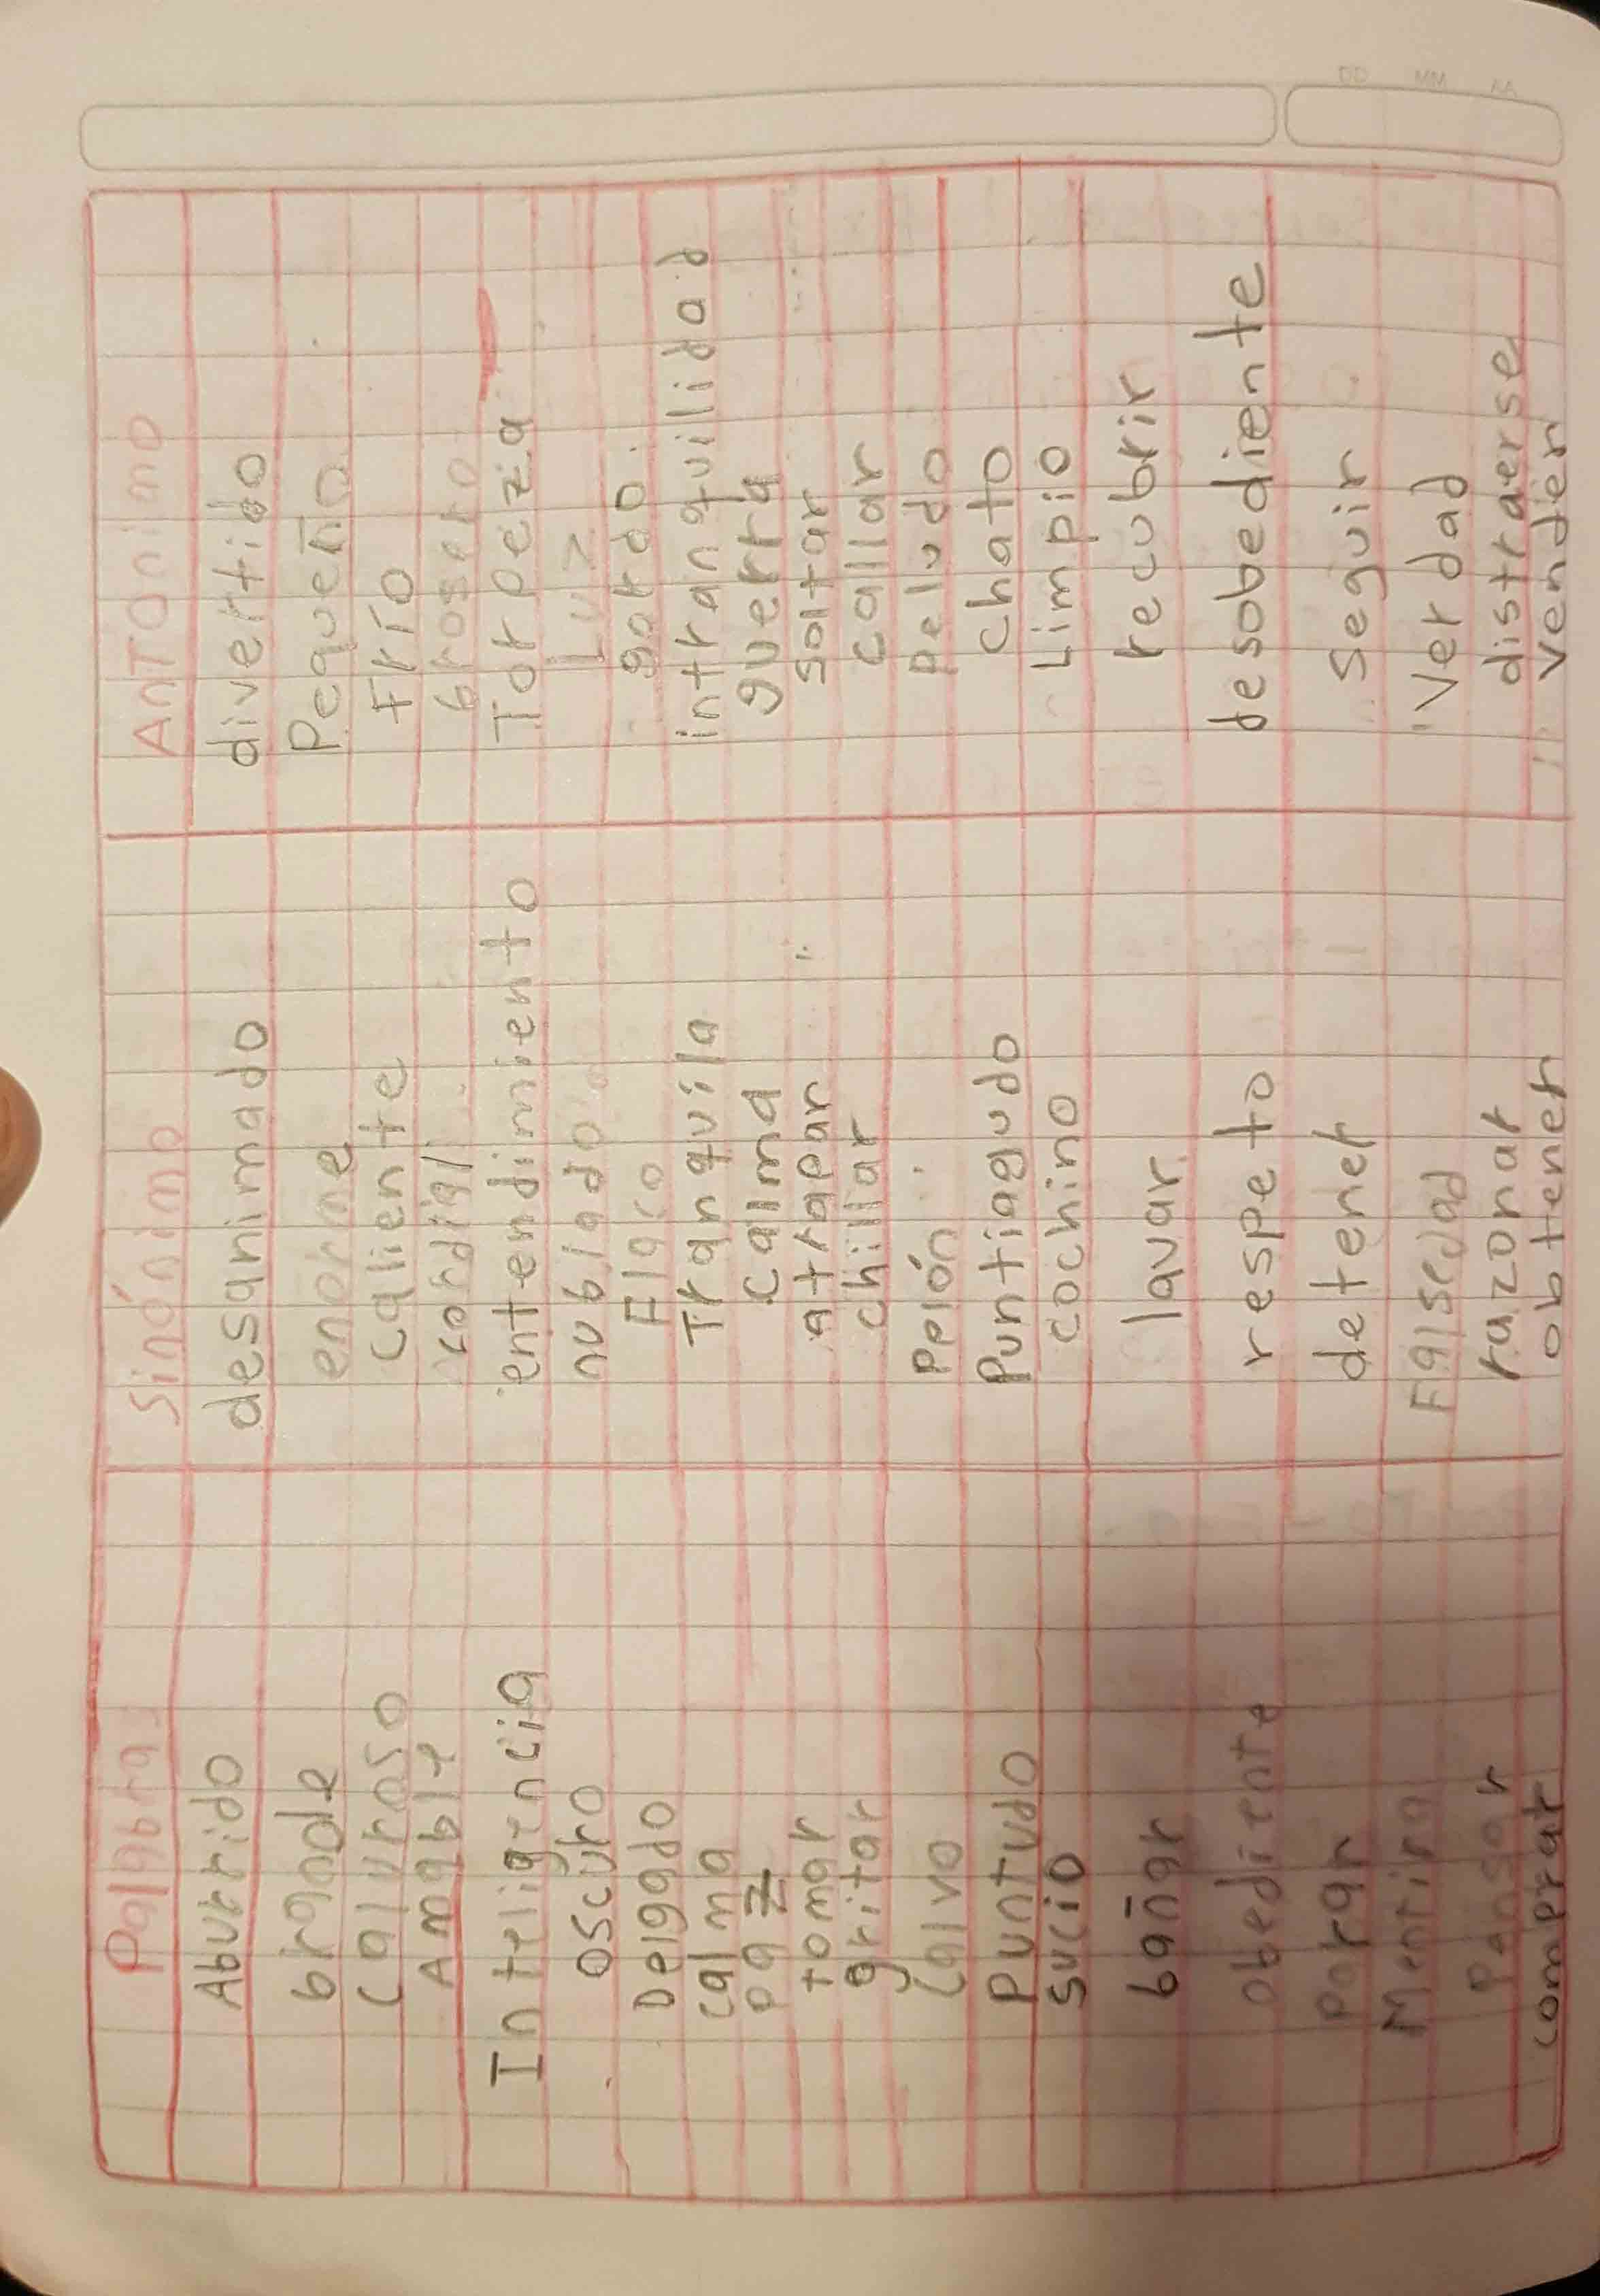 DD MM AA
Palabras Sinónimo AnTOnimo
Aburrido desanimado divertido
grande enorme Pequeño
Caluroso caliente frío
Amable cordial grosero
Inteligencia entendimiento Torpeza
oscuro nublado Luz
Delgado Flaco gordo
calma Tranquila intranquilidad
paz calma guerra
tomar atrapar soltar
gritar chillar callar
Calvo Pelón peludo
Puntudo Puntiagudo chato
sucio cochino Limpio
bañar lavar recubrir
obediente respeto desobediente
Parar detener Seguir
Mentira Falsedad Verdad
Pensar razonar distraerse
comprar obtener vender